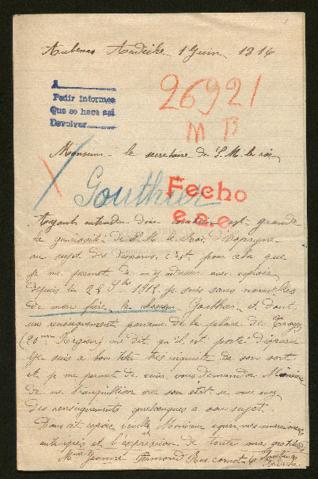 Aubenas Ardèche 1 Juin 1916
A
Pedir informes
Que se hace así
Devolver
26921
M B
Monsieur le secrétaire de S.M. le roi
Gouthier
Fecho
e.e.e.
Ayant entendu dire combien est grande
la générosité de S.M. le Roi d'Espagne
au sujet des disparus, c'est pour cela que
je me permet de m'y adresser avec espoir
depuis le 25 7bre 1915 je suis sans nouvelles
de mon frère, le Gouthier et dont
un renseignement parvenu de la
dit qu'il est porté disparu
Je suis a bon très inquiète de son sort
et je me permet de vous demander Monsieur
de me tranquilliser sur son état si vous avez
des renseignements quelconques a son sujet.
Dans cet espoir, veuillez Monsieur agréer mes
et l'expression de toute ma gratitude
Mme Armand Rue